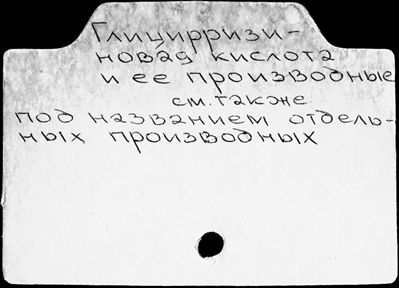 Глицирризи-
новая кислота
и ее производные
см. также
под названием отдель-
ных производных